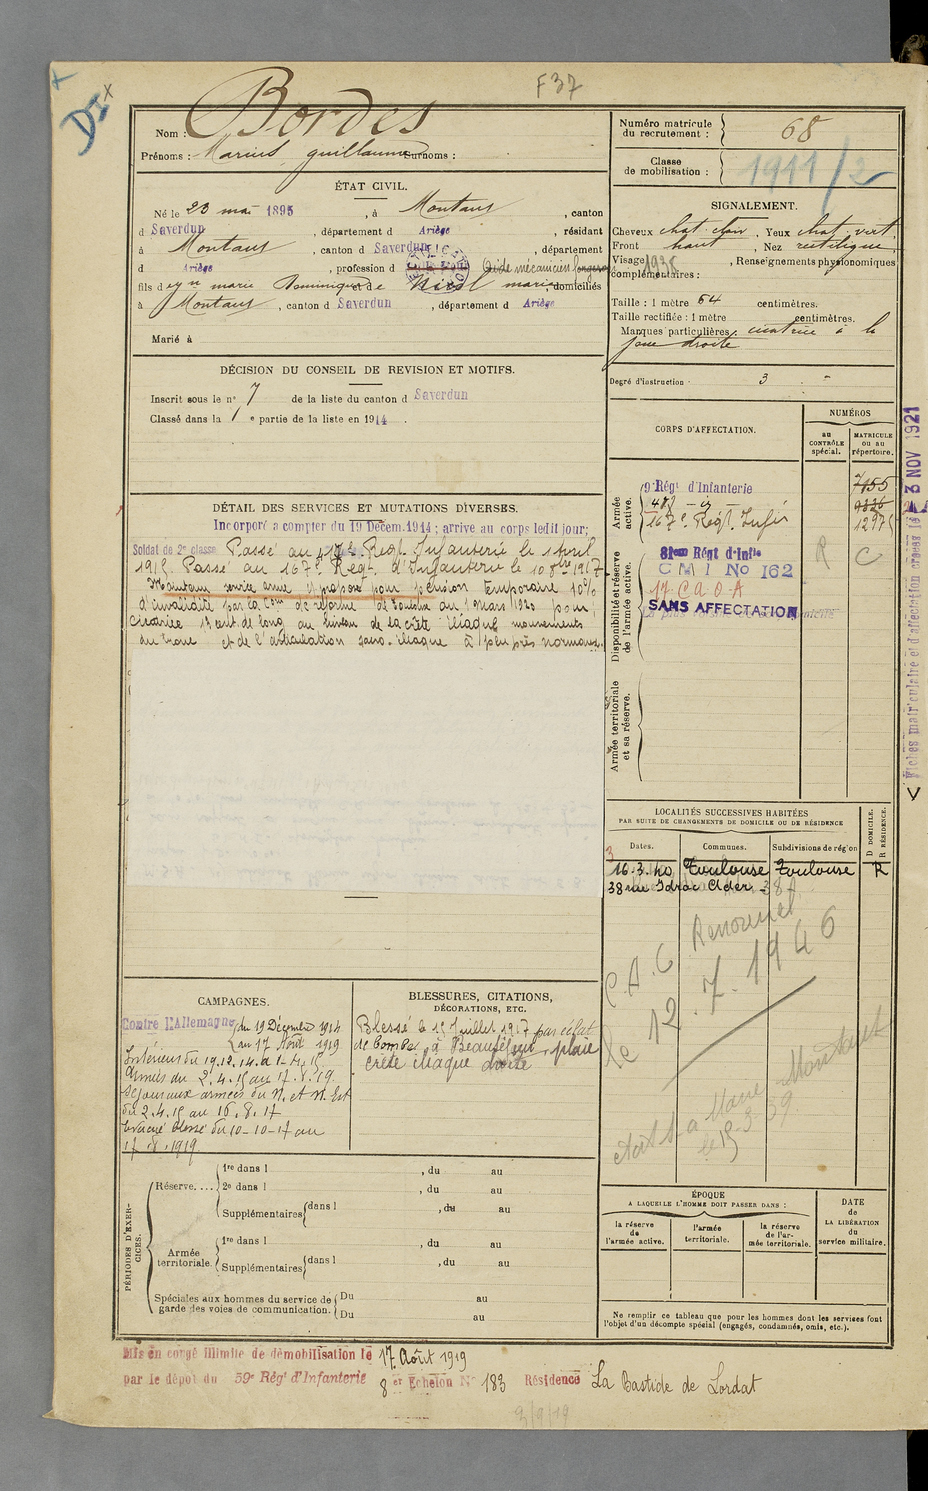 F 37
DI
Nom : Bordes
Prénoms : Marius, guillaume surnoms :
Numéro matricule du recrutement : 68
Classe de mobilisation : 1911/2
ÉTAT CIVIL.
Né le 23 mai 1895, à Montaut, canton
d Saverdun, département d Ariège, résidant
à Montaut, canton d Saverdun, département
d Ariège, profession d Aide mécanicien
fils d marie Dominique et de marie, domiciliés
à Montaut, canton d Saverdun, département d Ariège
Marié à
SIGNALEMENT.
Cheveux chat. clair, Yeux chat. vert
Front haut, Nez rectiligne
Visage , Renseignements physionomiques
complémentaires :
1935
Taille : 1 mètre 64 centimètres.
Taille rectifiée : 1 mètre centimètres.
Marques particulières : cicatrice à la
joue droite
Degré d'instruction : 3
DÉCISION DU CONSEIL DE REVISION ET MOTIFS.
Inscrit sous le n° 7 de la liste du canton d Saverdun
Classé dans la 1e partie de la liste en 1914.
CORPS D'AFFECTATION.
NUMÉROS
au CONTRÔLE spécial.
MATRICULE OU AU répertoire.
Armée active.
9e Régt d'Infanterie 7155
167e Régt Infie
Disponibilité et réserve de l'armée active.
81eme Régt d'Infie
C M I No 162
17. C.O.A
SANS AFFECTATION
R C
Armée territoriale et sa réserve.
3 NOV 1921
DÉTAIL DES SERVICES ET MUTATIONS DIVERSES.
Incorporé a compter du 19 Décem. 1914 ; arrive au corps ledit jour;
Soldat de 2e classe Passé au Regt Infanterie le 1 Avril
1915. Passé au 167e Regt d'Infanterie le 10 8bre 1917
Maintenu service armé et proposé pour pension temporaire 10%
d'invalidité par la Con de réforme de Toulouse du 1 mars 1920 pour :
Cicatrice cent. de long au niveau de la crête iliaque mouvements
du tronc et de l'articulation sacro-iliaque à peu près normaux.
LOCALITÉS SUCCESSIVES HABITÉES
PAR SUITE DE CHANGEMENTS DE DOMICILE OU DE RÉSIDENCE
D DOMICILE.
R RÉSIDENCE.
Dates. Communes. Subdivisions de région
16.3.40 Toulouse Toulouse R
38 rue Isdrac Ader
Renouvel
le 12.7.1946
CAMPAGNES.
Contre l'Allemagne du 19 Décembre 1914
au 17 Août 1919
Intérieur du 19.12.14 à 1-4.15
Armées du 2.4.15 au 17.8.19.
Séjour aux armées du N. et N. Est
du 2.4.15 au 16.8.17
Evacué blessé du 10-10-17 au
17.8.1919
BLESSURES, CITATIONS,
DÉCORATIONS, ETC.
Blessé le Juillet 1917 par éclat
de bombe à plaie
crête iliaque droite
PÉRIODES D'EXERCICES.
Réserve....
1re dans l , du au
2e dans l , du au
Supplémentaires dans l , du au
Armée territoriale.
1re dans l , du au
Supplémentaires dans l , du au
Spéciales aux hommes du service de garde des voies de communication.
Du au
Du au
ÉPOQUE
A LAQUELLE L'HOMME DOIT PASSER DANS :
la réserve de l'armée active.
l'armée territoriale.
la réserve de l'armée territoriale.
DATE de LA LIBÉRATION du service militaire.
Ne remplir ce tableau que pour les hommes dont les services font
l'objet d'un décompte spécial (engagés, condamnés, omis, etc.).
Mis en congé illimité de démobilisation le 17 Août 1919
par le dépôt du 59e Régt d'Infanterie 8 er Echelon No 183 Résidence La Bastide de Lordat